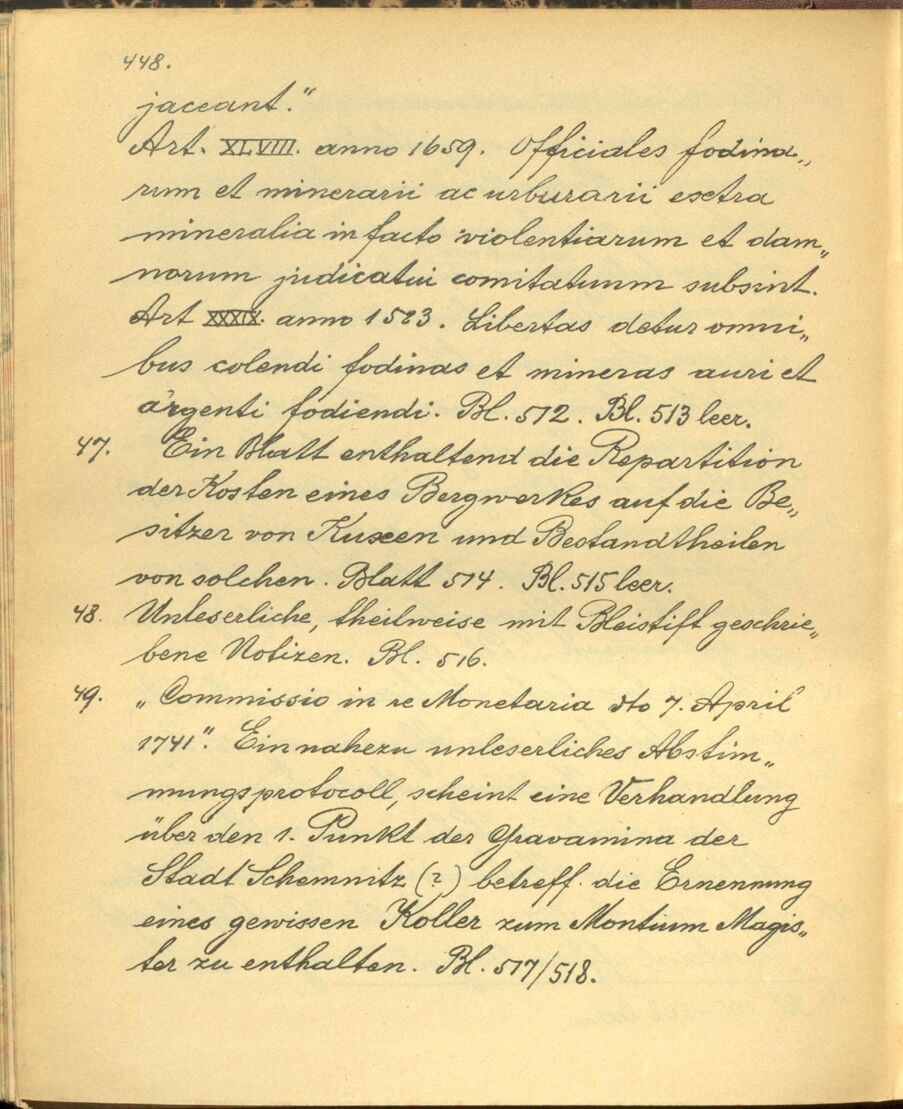 448.
jaceant."
Art. XLVIII. anno 1659. Officiales fodina„
rum et minerarii ac urburarii exstra
mineralia in facto violentiarum et dam„
norum judicatui comitatuum subsint.
Art XXXIX. anno 1523. Libertas detur omni„
bus colendi fodinas et mineras auri et
argenti fodiendi. Bl. 512. Bl. 513 leer.
47. Ein Blatt enthaltend die Repartition
der Kosten eines Bergwerkes auf die Be„
sitzer von Kuxen und Bestandtheilen
von solchen. Blatt 514. Bl. 515 leer.
48. Unleserliche, theilweise mit Bleistift geschrie„
bene Notizen. Bl. 516.
49. „Commissio in re Monetaria dto 7. April
1741". Ein nahezu unleserliches Abstim„
mungsprotocoll, scheint eine Verhandlung
über den 1. Punkt der Gravamina der
Stadt Schemnitz (?) betreff. die Ernennung
eines gewissen Koller zum Montium Magis„
ter zu enthalten. Bl. 517/518.